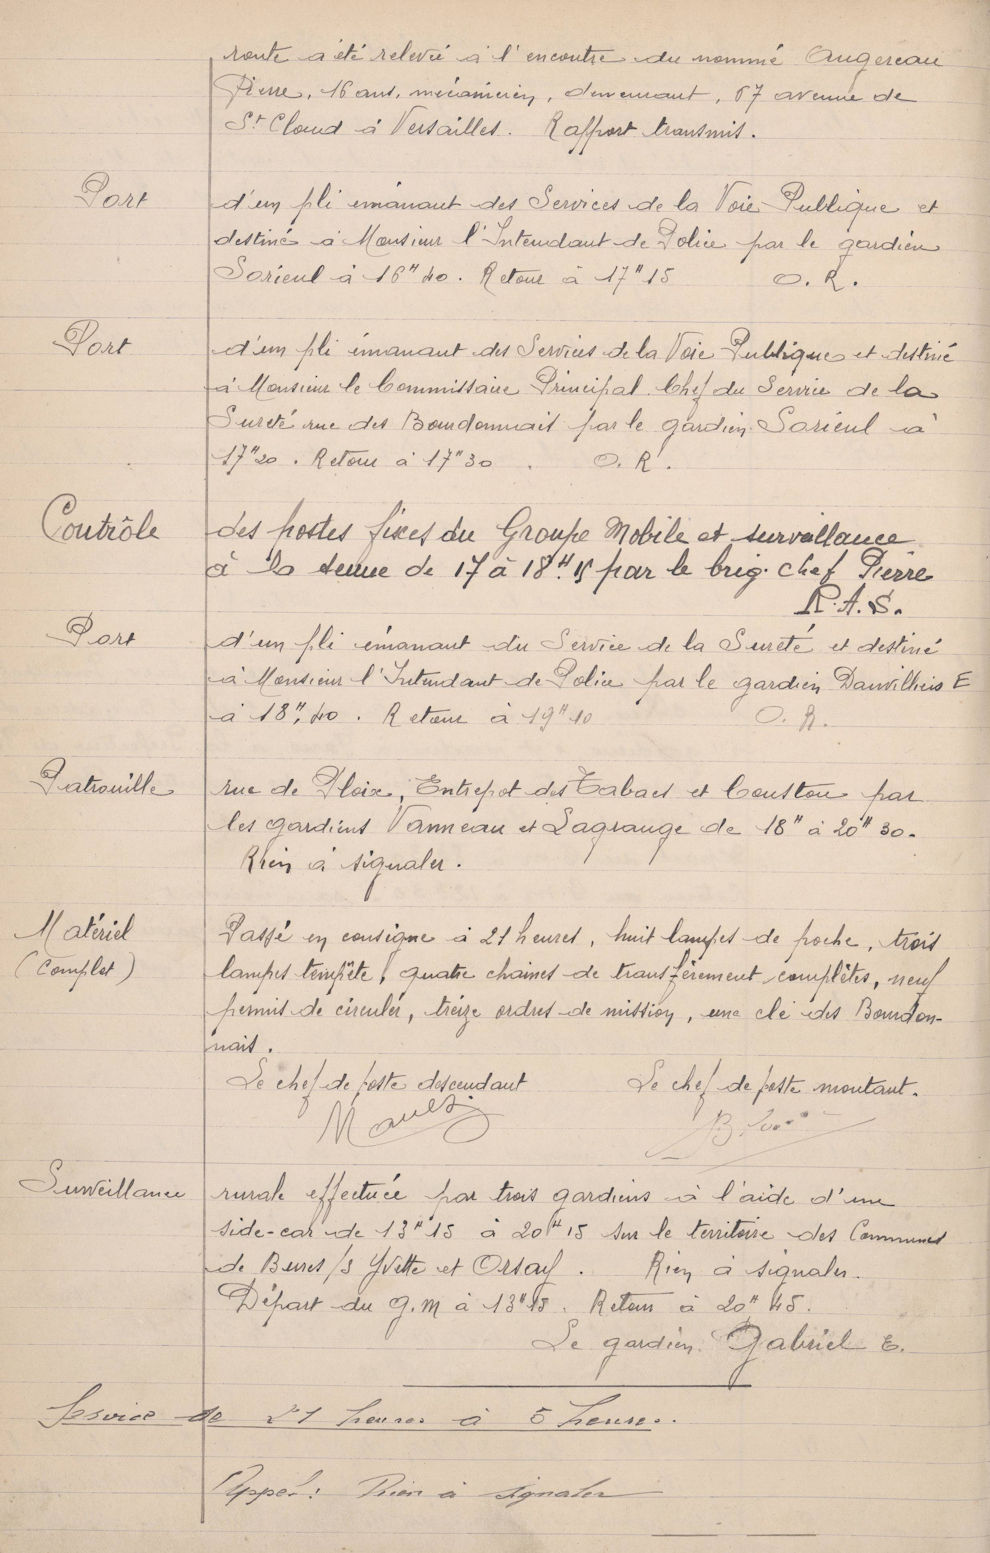 route a été relevée à l'encontre du nommé Augereau
Pierre, 16 ans, mécanicien, demeurant, 67 avenue de
St Cloud à Versailles. Rapport transmis.
Port d'un pli émanant des Services de la Voie Publique et
destiné à Monsieur l'Intendant de Police par le gardien
Sorieul à 16H40. Retour à 17H15 O. R.
Port d'un pli émanant des Services de la Voie Publique et destiné
à Monsieur le Commissaire Principal Chef du Service de la
Sureté rue des Bourdonnais par le gardien Sorieul à
17H20. Retour à 17H30. O. R.
Contrôle des postes fixes du Groupe Mobile et surveillance
à la tenue de 17 à 18H15 par le brig. chef Pierre
R.A.S.
Port d'un pli émanant du Service de la Sureté et destiné
à Monsieur l'Intendant de Police par le gardien Danvilliers E
à 18H40. Retour à 19H10 O. R.
Patrouille rue de Ploix, Entrepot des Tabacs et Coustou par
les gardiens Vanneau et Lagrange de 18H à 20H30.
Rien à signaler.
Matériel Passé en consigne à 21 heures, huit lampes de poche, trois
(Complet) lampes tempête, quatre chaines de transfèrement complètes, neuf
permis de circuler, treize ordres de mission, une clé des Bourdon-
nais.
Le chef de poste descendant Le chef de poste montant.
Surveillance rurale effectuée par trois gardiens à l'aide d'un
side-car de 13H15 à 20H15 sur le territoire des Communes
de Bures/s Yvette et Orsay. Rien à signaler.
Départ du G.M à 13H15. Retour à 20H45.
Le gardien Gabriel E.
Service de 21 heures à 5 heures.
Appel: Rien à signaler